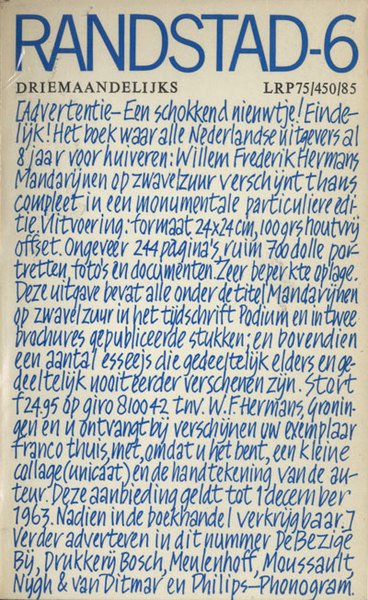 RANDSTAD-6
DRIEMAANDELIJKS LRP75/450/85
[Advertentie–Een schokkend nieuwtje! Einde-
lijk! Het boek waar alle Nederlandse uitgevers al
8 jaar voor huiveren: Willem Frederik Hermans
Mandarijnen op zwavelzuur verschijnt thans
compleet in een monumentale particuliere edi-
tie. Uitvoering: formaat 24x24cm, 100grs houtvrij
offset. Ongeveer 244 pagina's, ruim 700 dolle por-
tretten, foto's en documenten. Zeer beperkte oplage.
Deze uitgave bevat alle onder de titel Mandarijnen
op zwavelzuur in het tijdschrift Podium en in twee
brochures gepubliceerde stukken; en bovendien
een aantal esseejs die gedeeltelijk elders en ge-
deeltelijk nooit eerder verschenen zijn. Stort
f24.95 op giro 810042 tnv. W.F. Hermans, Gronin-
gen en u ontvangt bij verschijnen uw exemplaar
franco thuis, met, omdat u het bent, een kleine
collage (unicaat) en de handtekening van de au-
teur. Deze aanbieding geldt tot 1 december
1963. Nadien in de boekhandel verkrijgbaar.]
Verder adverteren in dit nummer De Bezige
Bij, Drukkerij Bosch, Meulenhoff, Moussault,
Nijgh & van Ditmar en Philips-Phonogram.